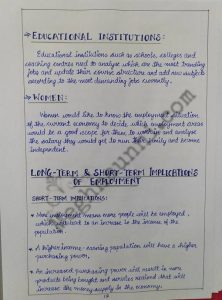 → EDUCATIONAL INSTITUTIONS:
Educational institutions such as schools, colleges and
coaching centres need to analyse which are the most trending
jobs and update their course structure and add new subjects
according to the most demanding jobs currently.
→ WOMEN:
Women would like to know the employment situation
of the current economy to decide which employment areas
would be a good scope for them to work in and analyse
the salary they would get to run their family and become
independent.
LONG-TERM & SHORT-TERM IMPLICATIONS
OF EMPLOYMENT
SHORT-TERM IMPLICATIONS:
More employment means more people will be employed,
which lead to an increase in the income of the
population.
A higher income-earning population will have a higher
purchasing power.
An increased purchasing power will result in more
products being bought and services realised that will
increase the money supply in the economy.